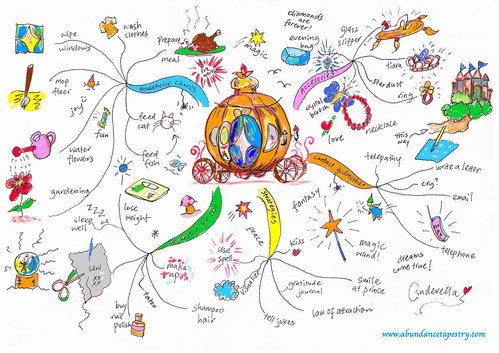 wipe
windows
wash
clothes
prepare
meal
magic
mop
floor
Household Chores
joy
fun
feed
cat
water
flowers
feed
fish
gardening
diamonds
are
forever!
evening
bag
glass
slipper
tiara
Accessories
stardust
ring
crystal
brooch
love
necklace
this
way
telepathy
write a letter
cry?
email
telephone
Contact godmother
fantasy
magic
wand!
dreams
come true!
Cinderella
lose
weight
zzz
sleep
well
sew
xx
xx
make
up
tattoo
buy
nail
polish
shampoo
hair
Strategies
peace
use
spell
kiss
gratitude
journal
smile
at prince
law of attraction
tell jokes
www.abundancetapestry.com